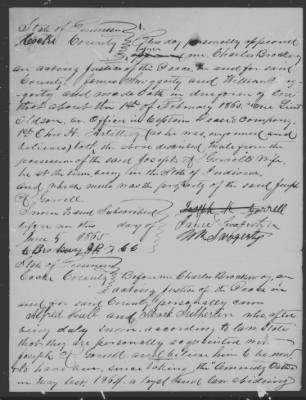 State of Tennessee
Cocke County This day personally appeared
before me, Charles Brockway
an acting Justice of the Peace in and for said
County James Swaggerty and William
Swaggerty and made oath in due form of law
that about the 1st of February 1865 one Lieut
Eldson, an Officer in Captain Company
1st Ohio H. Artillery (as he was informed and
believes) took the above described Mule from the
possession of the said Joseph A. Gorrell's Wife
he at the time being in the State of Indiana
and which mule was the property of the said Joseph
A Gorrell
Sworn to and Subscribed
before me this day of
June 1865
C Brockway J.P.
State of Tennessee
Cocke County Before me Charles Brockway, an
acting Justice of the Peace in
and for said County personally came
Alfred and Mark who after
being duly sworn according to law State
that they are personally acquainted with
Joseph A Gorrell and believe him to be now
to have been, since taking the Amnesty Oath
in May last 1864, a loyal and law abiding